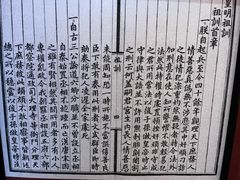 皇明祖訓
祖訓首章
一朕自起兵至今四十餘年親理天下庶務人
情善惡真偽無不涉歷其中奸頑刁詐
之徒情犯深重灼然無疑者特令法外
加刑意在使人知所警懼不敢輕易犯
法然此特權時處置頓挫奸頑非守成
之君所用常法以後子孫做皇帝時止
守律與大誥並不許用黥刺剕劓閹割
之刑云何蓋嗣君宮生內長人情善惡
祖訓 四
未能周知恐一時所施不當誤傷善良
臣下敢有奏用此刑者文武群臣即時
劾奏將犯人凌遲全家處死
一自古三公論道六卿分職並不曾設立丞相
自秦始置丞相不旋踵而亡漢唐宋因
之雖有賢相然其間所用者多有小人
專權亂政今我朝罷丞相設五府六部
都察院通政司大理寺等衙門分理天
下庶務彼此頡頏不敢相壓事皆朝廷
總之所以穩當以後子孫做皇帝時